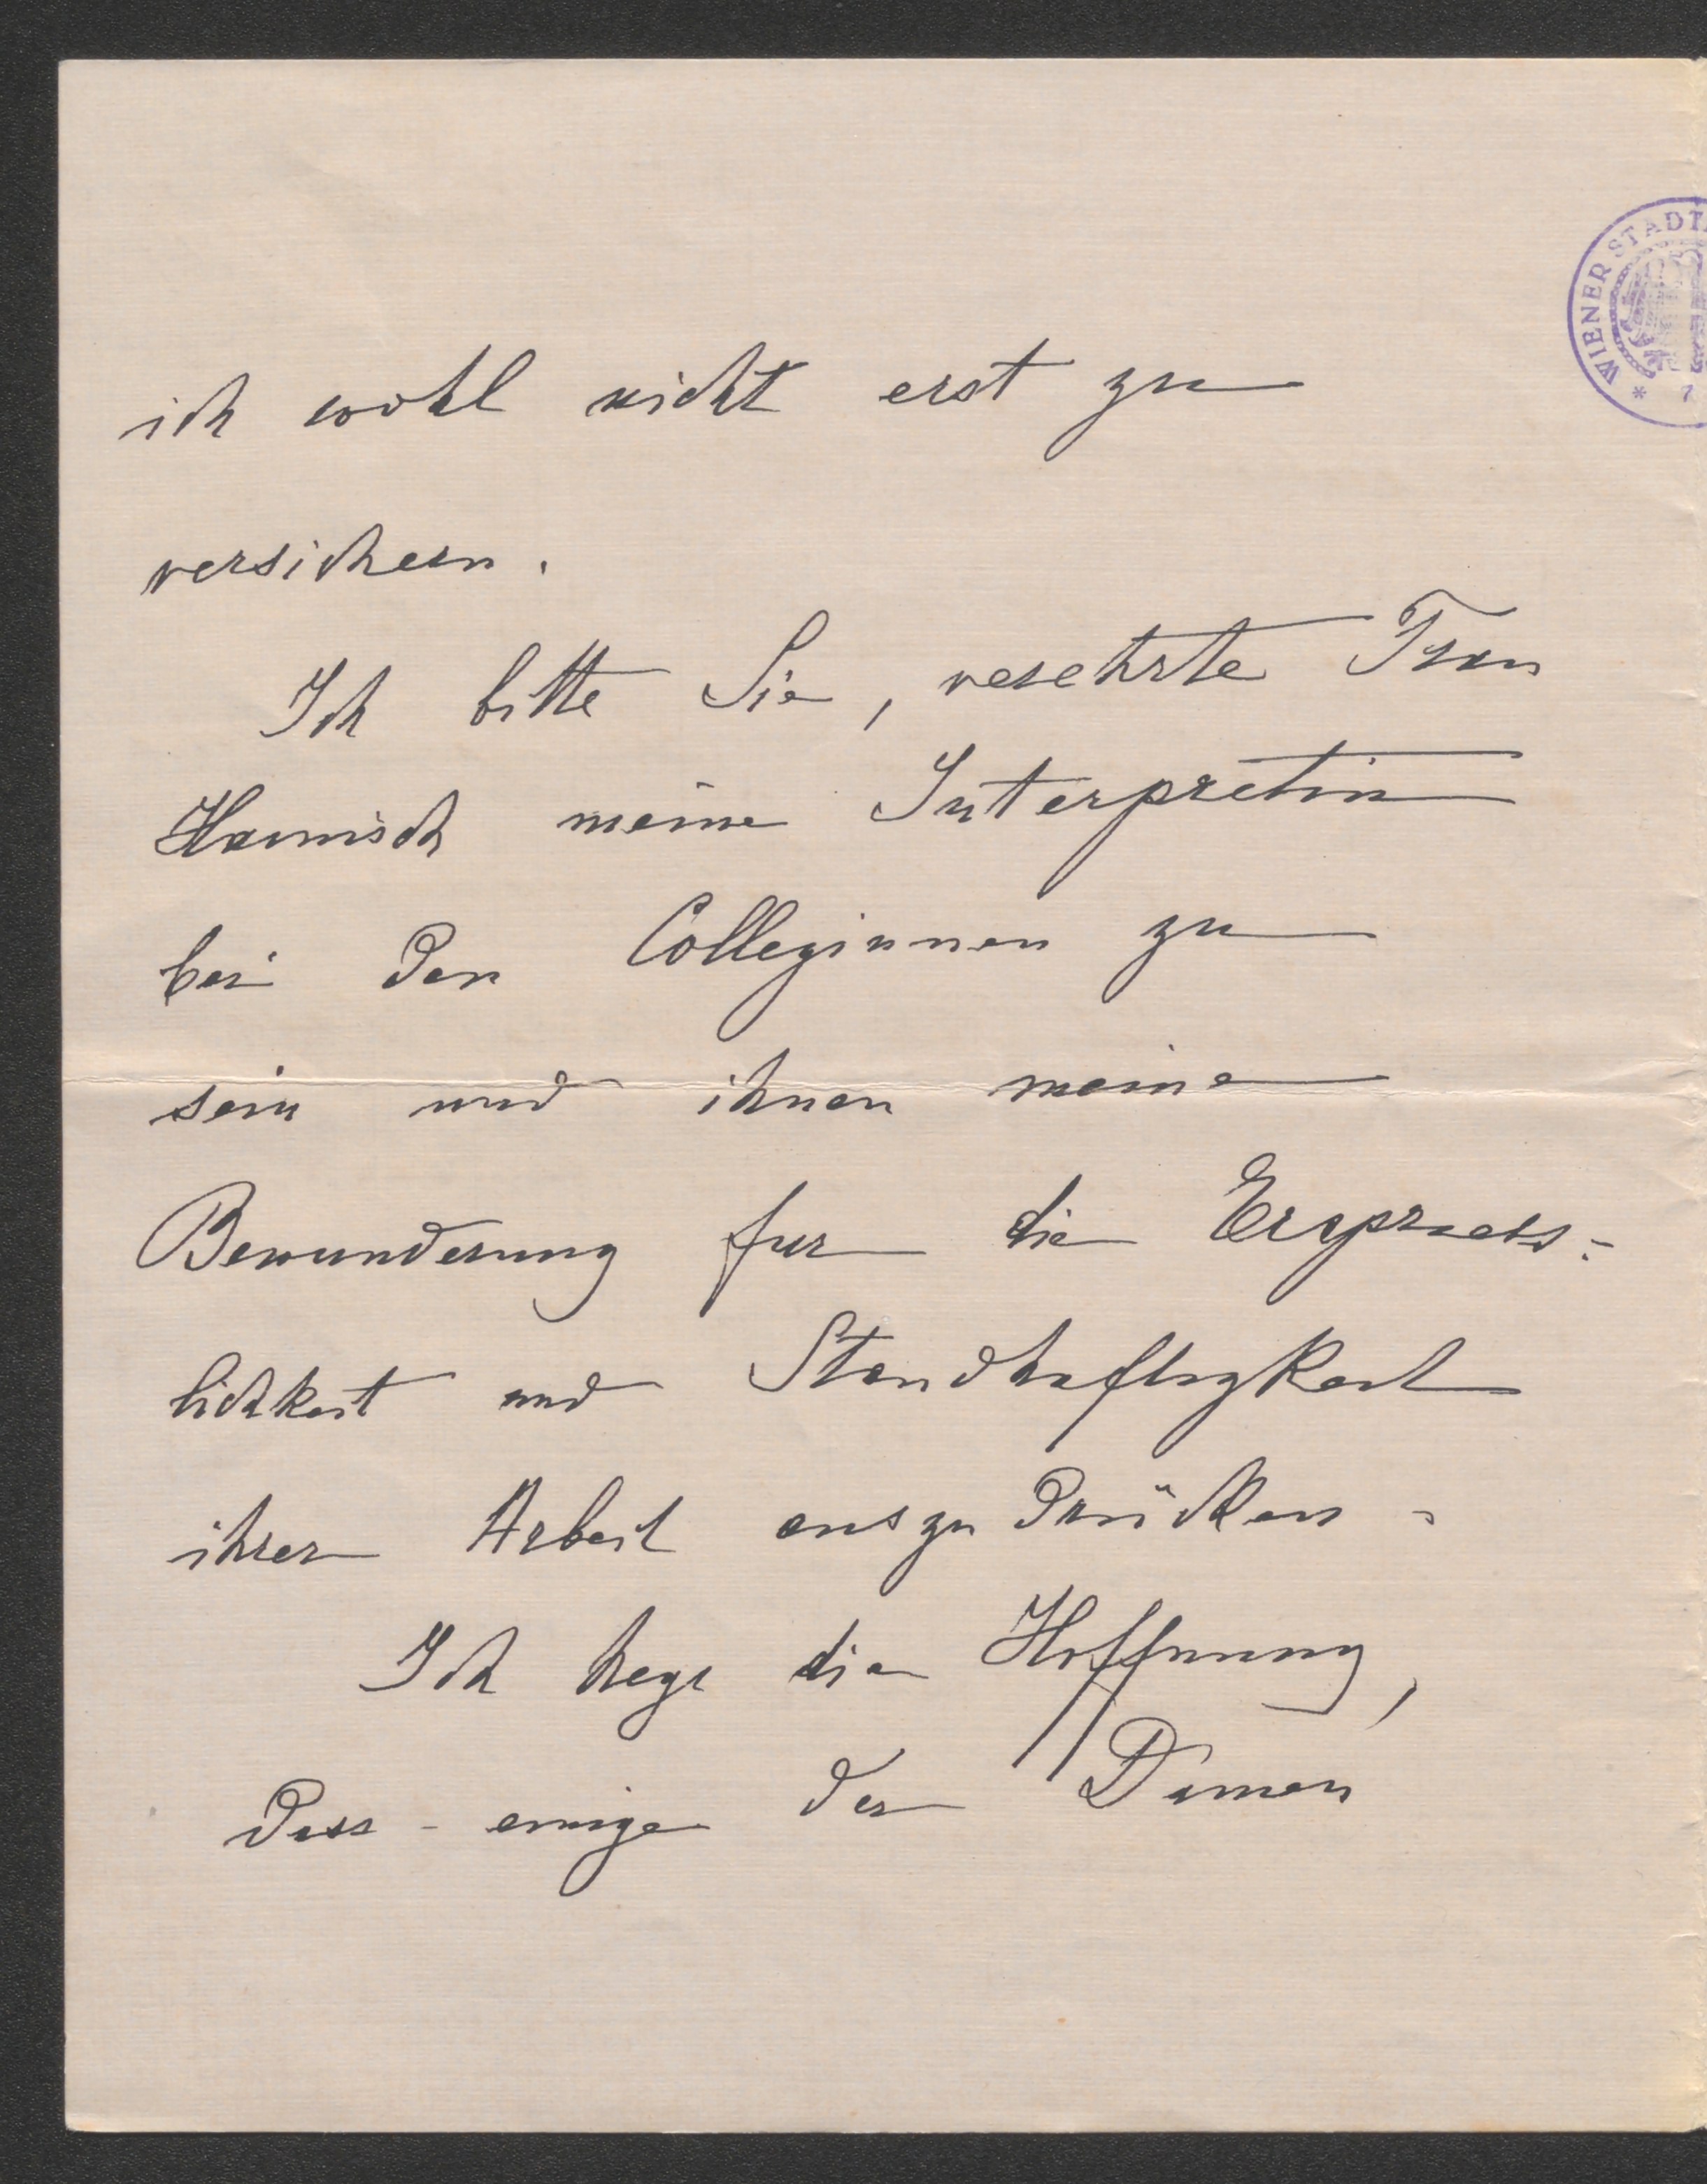 WIENER STADT
* 7
ich wohl nicht erst zu
versichern.
Ich bitte Sie, verehrte Frau
Hainisch meine Interpretin
bei den Colleginnen zu
sein und ihnen meine
Bewunderung fur die Erspriess-
lichkeit und Standhaftigkeit
ihrer Arbeit auszudrücken.
Ich hege die Hoffnung,
dass - einige der Damen